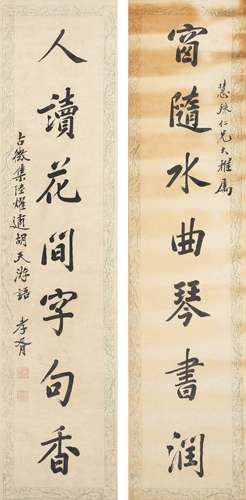 慧珠仁兄大雅属
窗隨水曲琴書潤
人讀花間字句香
占微集陸燿遹胡天游語
孝胥